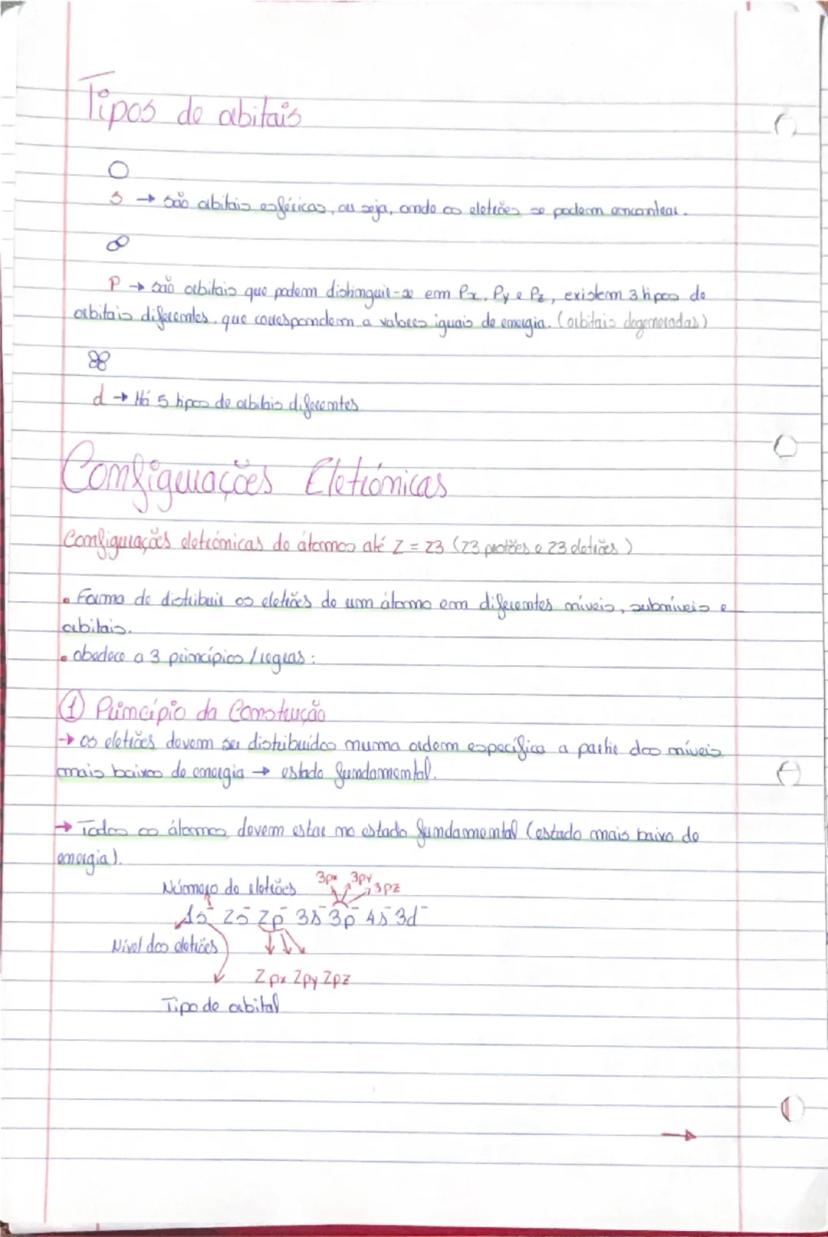 Tipos de orbitais
s → São orbitais esféricas, ou seja, onde os eletrões se podem encontrar.
P → são orbitais que podem distinguir-se em Px, Py e Pz, existem 3 tipos de
orbitais diferentes que correspondem a valores iguais de energia. (orbitais degeneradas)
d → Há 5 tipos de orbitais diferentes
Configurações Eletrónicas
Configurações eletrónicas de átomos até Z = 23 (23 protões e 23 eletrões)
• Forma de distribuir os eletrões de um átomo em diferentes níveis, subníveis e
orbitais.
• obedece a 3 princípios/regras:
① Princípio da Construção
→ os eletrões devem ser distribuídos numa ordem específica a partir dos níveis
mais baixos de energia → estado fundamental.
→ Todos os átomos devem estar no estado fundamental (estado mais baixo de
energia).
Número de eletrões 3px 3py 3pz
1s⁻ 2s⁻ 2p⁻ 3s⁻ 3p⁻ 4s⁻ 3d⁻
Nível dos eletrões
2px 2py 2pz
Tipo de orbital